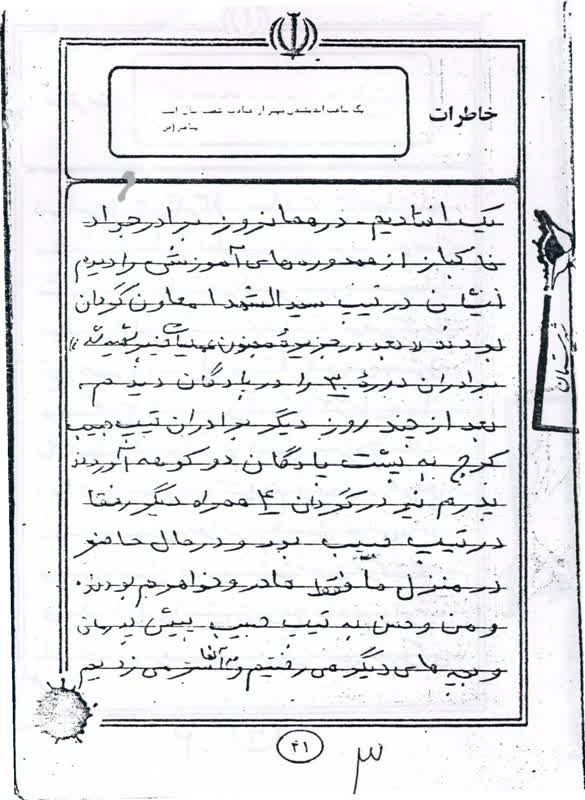 خاطرات
یک ساعت اندیشیدن بهتر از عبادت شصت سال است
پیامبر (ص)
یک افتادیم. در همانروز برادر جواد
خاکباز از همدوره‌های آموزشی را دیدم
ایشان در تیپ سید الشهدا معاون گردان
بودند «بعد در جزیرهٔ مجنون عملیات خیبر شهید شد»
برادران دورهٔ ۳۰ را در پادگان دیدم.
بعد از چند روز دیگر برادران تیپ حبیب
کوچ به پشت پادگان دوکوهه آوردند
پدرم نیز در گردان ۴ همراه دیگر رفقا
در تیپ حبیب بود و در حال حاضر
در منزل ما فقط مادر و خواهرم بودند.
و من و حسن به تیپ حبیب پیش پدرمان
و بچه‌های دیگر می‌رفتیم و به آنها سر می‌زدیم
۴۱
۳